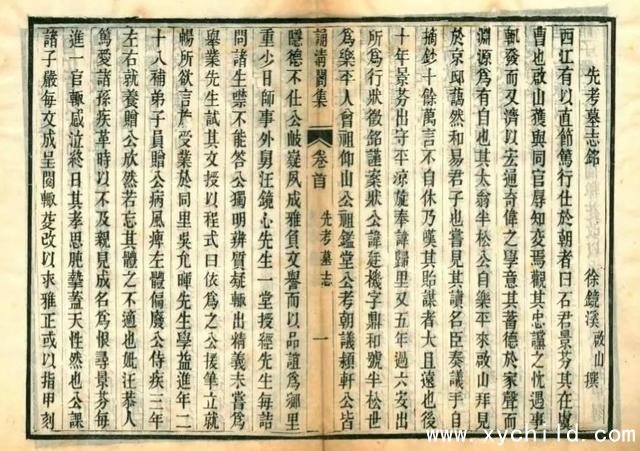 先考墓志銘
徐鏡溪 啟山 撰
西江有以直節篤行仕於朝者曰石君景芬其在虞
曹也啟山獲與同官辱知交焉觀其忠讜之忱遇事
郵發而又濟以宏通奇偉之學意其蓄德於家聲而
淵源爲有自也其太翁半松公自樂平來啟山拜見
於京邸藹然和易君子也嘗見其讀名臣奏議手自
摘鈔十餘萬言不自休乃嘆其貽謀者大且遠也後
十年景芬出守平涼旋奉諱歸里又五年過六安出
所爲行狀徵銘謹案狀公諱廷機字鼎和號半松世
爲樂平人曾祖仰山公祖鑑堂公考朝議穎軒公皆
誦清閣集 卷首 先考墓志 一
隱德不仕公岐嶷夙成雅負文譽而以品誼爲鄉里
重少日師事外舅汪鏡心先生一堂授經先生每詰
問諸生噤不能答公獨明辨質疑輒出精義未嘗爲
舉業先生試其文授以程式曰依爲之公援筆立就
暢所欲言於受業於同里吳允暉先生學益進年二
十八補弟子員贈公病風痺左體偏廢公侍疾三年
左右就養贈公欣然若忘其體之不適也妣汪恭人
篤愛諸孫疾革時以不及親見成名爲恨尋景芬每
進一官輒感泣終日其孝思肫摯蓋天性然也公課
諸子嚴每文成呈閱輒芟改以求雅正或以指甲刻
www.xychild.com